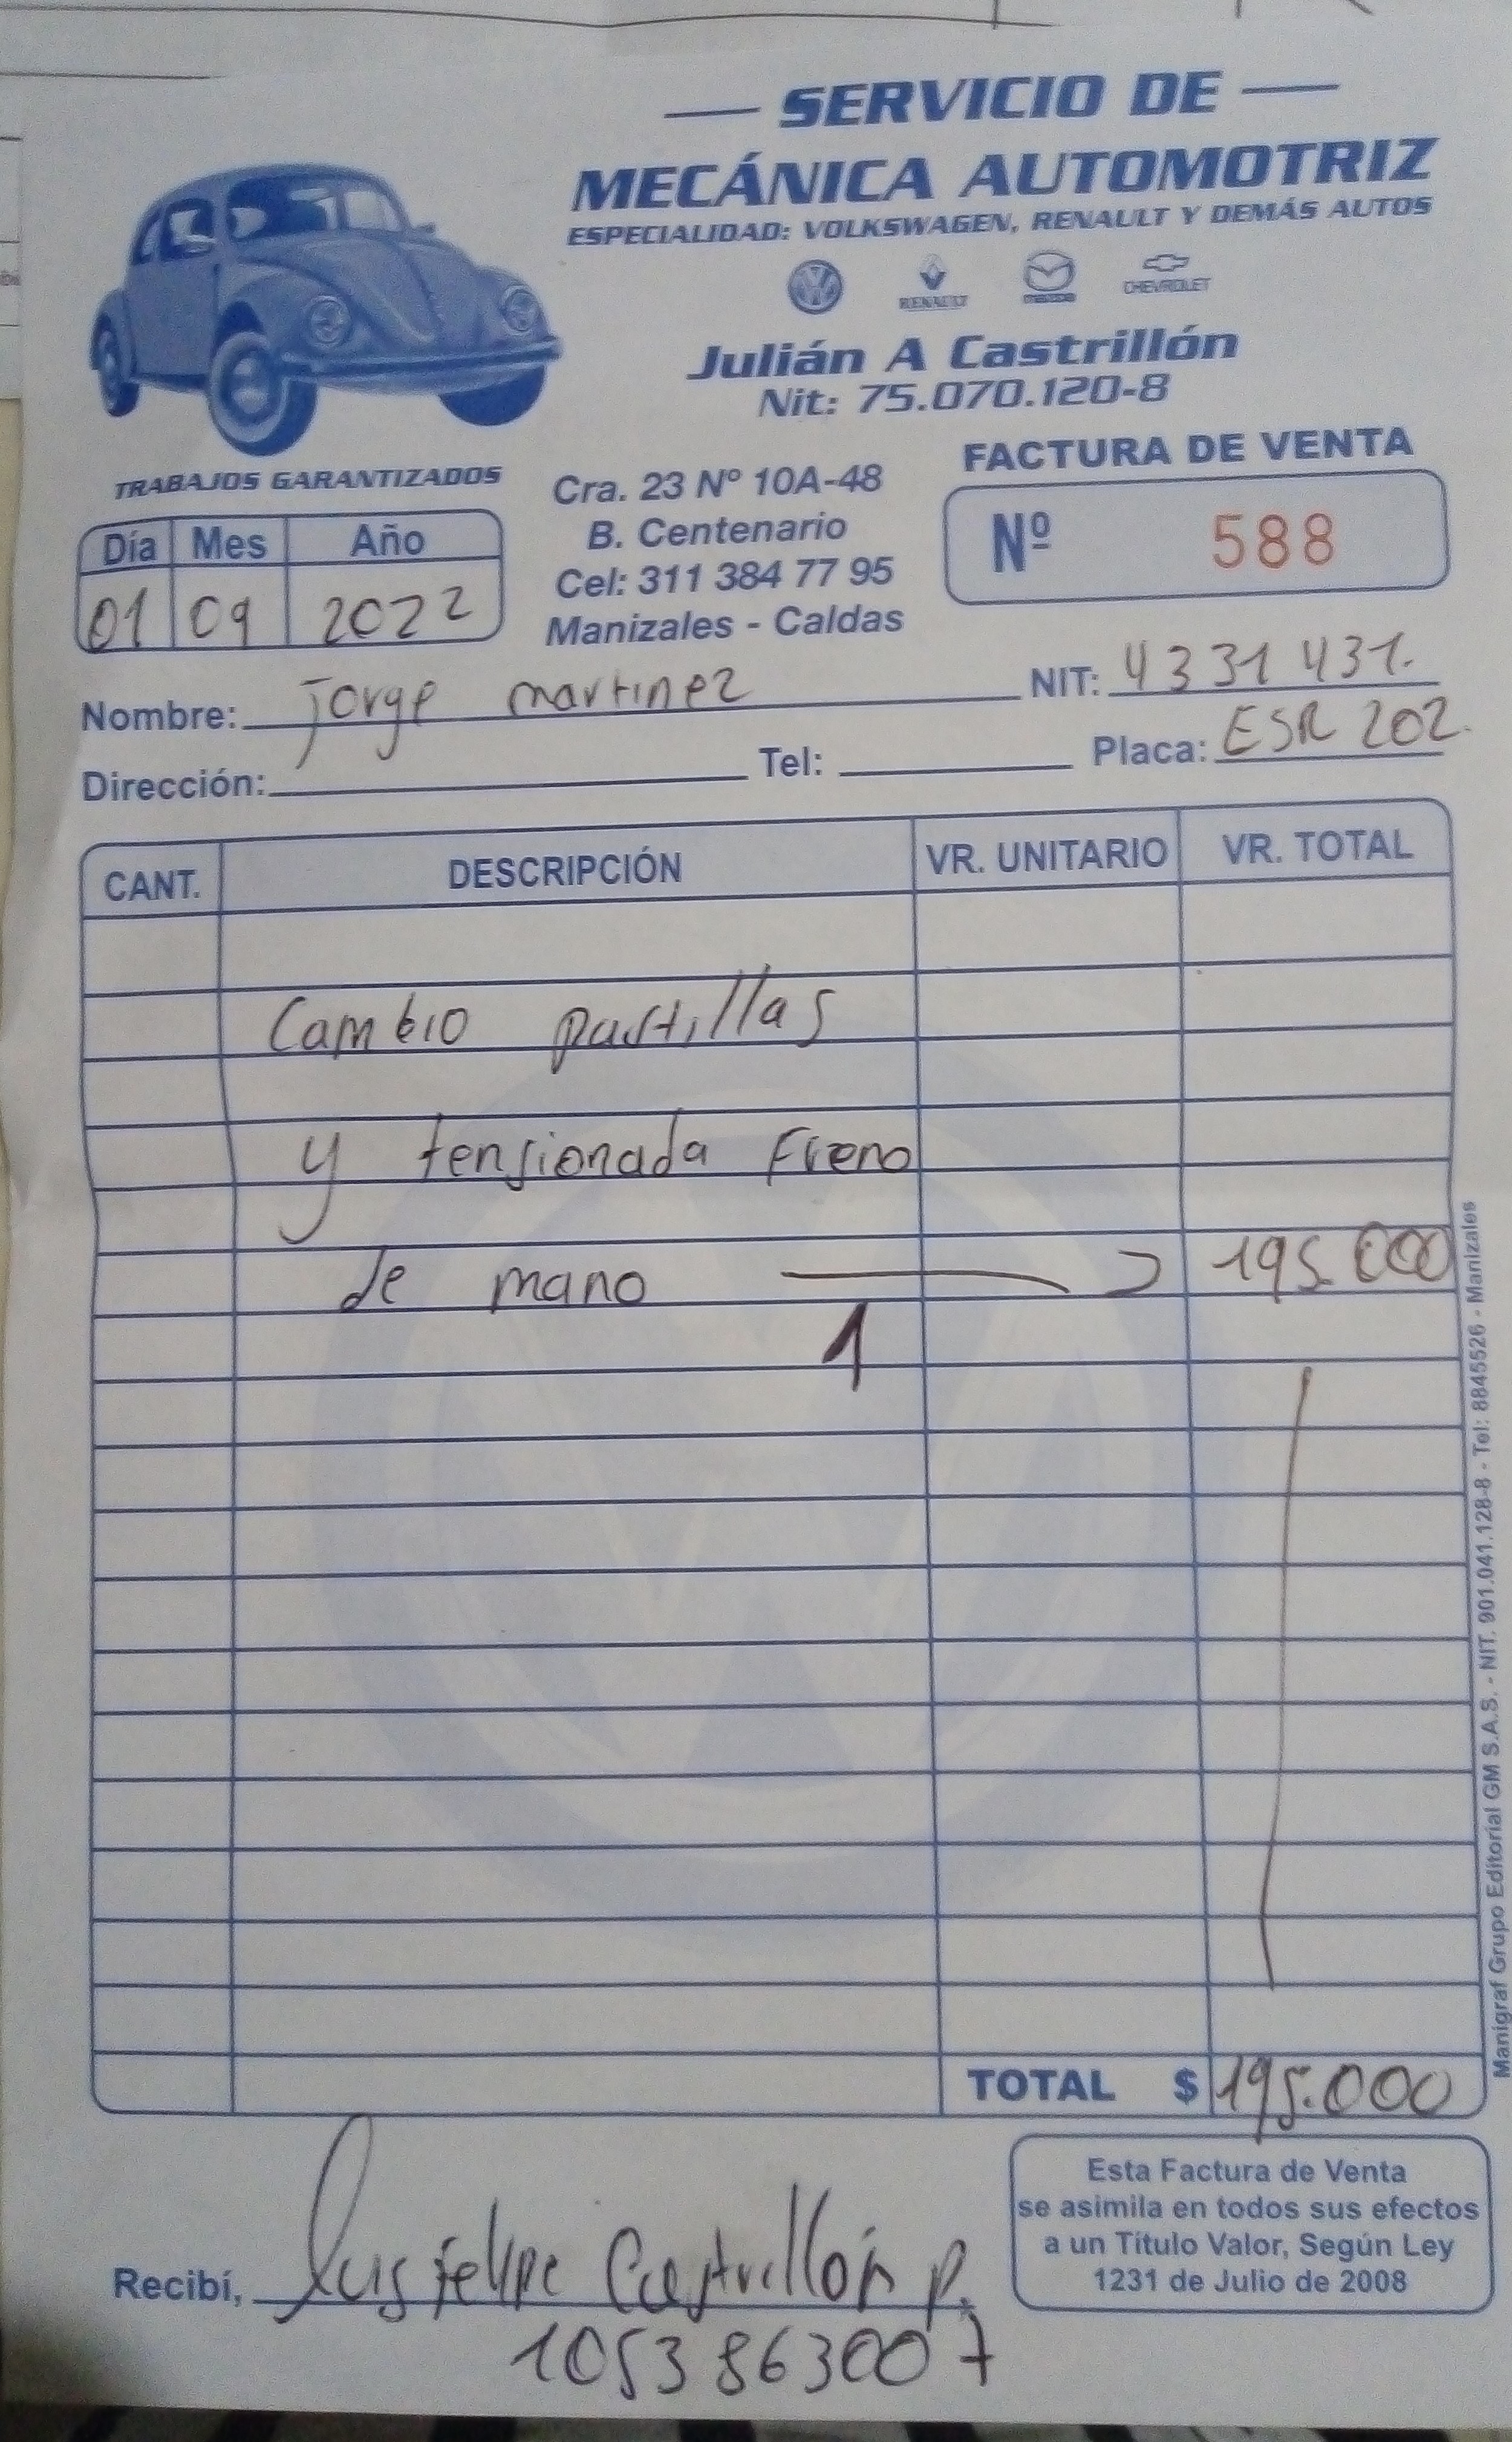 SERVICIO DE
MECÁNICA AUTOMOTRIZ
ESPECIALIDAD: VOLKSWAGEN, RENAULT Y DEMÁS AUTOS
RENAULT mazda CHEVROLET
Julián A Castrillón
Nit: 75.070.120-8
TRABAJOS GARANTIZADOS
Cra. 23 Nº 10A-48
B. Centenario
Cel: 311 384 77 95
Manizales - Caldas
FACTURA DE VENTA
Nº 588
Día Mes Año
01 09 2022
Nombre: jorge martinez NIT: 4331431.
Dirección: Tel: Placa: ESR 202.
CANT. DESCRIPCIÓN VR. UNITARIO VR. TOTAL
Cambio pastillas
y tensionada Freno
de mano 195.000
1
TOTAL $ 195.000
Recibí, luis felipe Castrillón p.
1053863007
Esta Factura de Venta
se asimila en todos sus efectos
a un Título Valor, Según Ley
1231 de Julio de 2008
Manigraf Grupo Editorial GM S.A.S. - NIT. 901.041.128-8 - Tel: 8845526 - Manizales